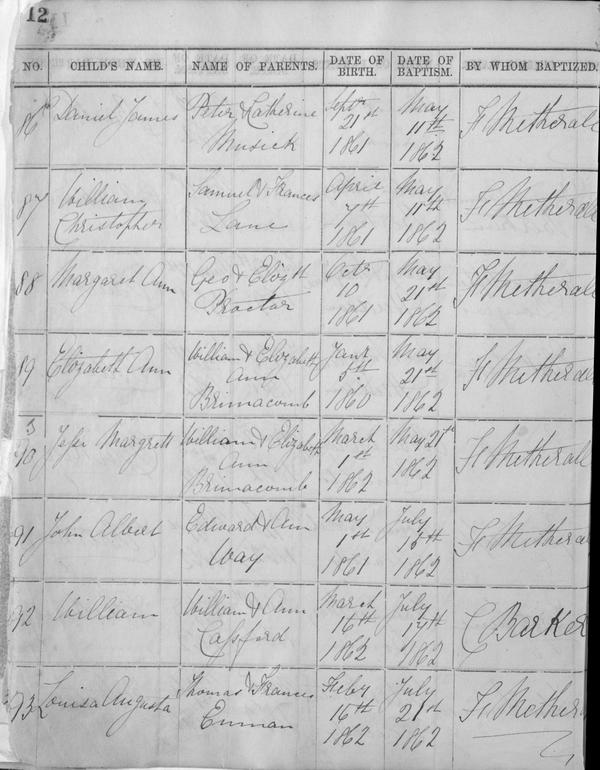 12
NO. CHILD'S NAME. NAME OF PARENTS. DATE OF BIRTH. DATE OF BAPTISM. BY WHOM BAPTIZED.
86 Daniel James Peter & Catherine Musick Septr 21st 1861 May 11th 1862 Metherall
87 William Christopher Samuel & Frances Lane April 7th 1861 May 11th 1862 Metherall
88 Margaret Ann Geo & Elizth Proctor Octr 10 1861 May 21st 1862 Metherall
89 Elizabeth Ann William & Elizabeth Ann Brimacomb Jany 5th 1860 May 21st 1862 Metherall
90 Margrett William & Elizabeth Ann Brimacomb March 1st 1862 May 21st 1862 Metherall
91 John Albert Edward & Ann Way May 1st 1861 July 1862 Metherall
92 William William & Ann March 16th 1862 July 17th 1862 C Barker
93 Louisa Augusta Thomas & Frances Enman Feby 16th 1862 July 21st 1862 Metherall